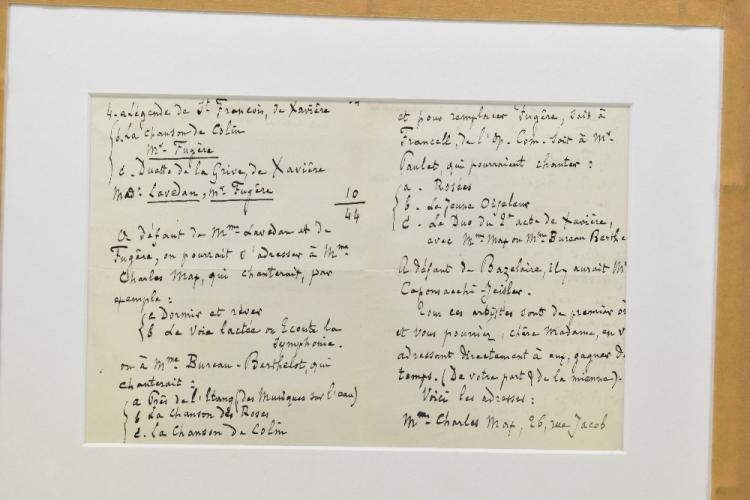 4. a Légende de St Francois, de Xavière
b. La Chanson de Colin
Mr. Fugère
c. Duetto de la Grive, de Xavière
Mad: Lavedan, Mr. Fugère
10
44
A défaut de Mme Lavedan et de
Fugère, on pourrait s'adresser à Mme
Charles Max, qui chanterait, par
exemple :
a Dormir et rêver
b Le Voie lactée ou Ecoute la
Symphonie.
ou à Mme Bureau-Berthelot, qui
chanterait :
a Près de l'Etang (des Musiques sur l'eau)
b La Chanson des Roses
c. La Chanson de Colin
et pour remplacer Fugère, soit à
Francell, de l'Op. Com. soit à Mr.
Paulet, qui pourraient chanter :
a. Rosées
b. Le Jeune Oiseleur
c. Le Duo du 2e acte de Xavière,
avec Mme Max ou Mme Bureau Berthe
A défaut de Bazelaire, il y aurait M
Caponsacchi-Jeisler.
Tous ces artistes sont de premier or
et vous pourriez, chère Madame, en v
adressant directement à eux, gagner d
temps. (De votre part & de la mienne).
Voici les adresses :
Mme Charles Max, 26, rue Jacob